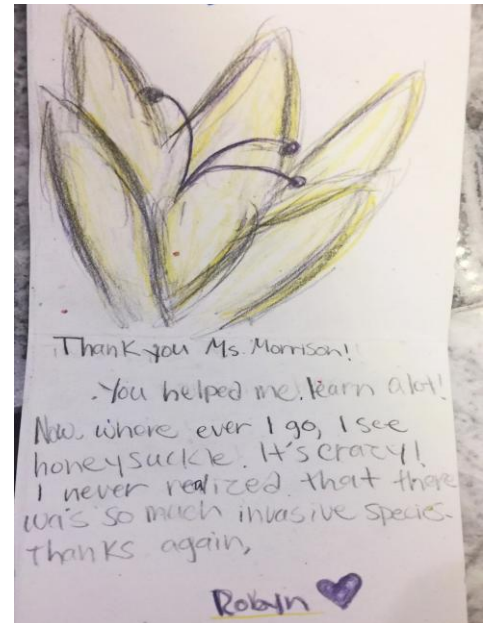 Thank you Ms. Morrison!
You helped me learn alot!
Now where ever I go, I see
honeysuckle. It's crazy!
I never realized that there
was so much invasive species.
Thanks again,
Robyn